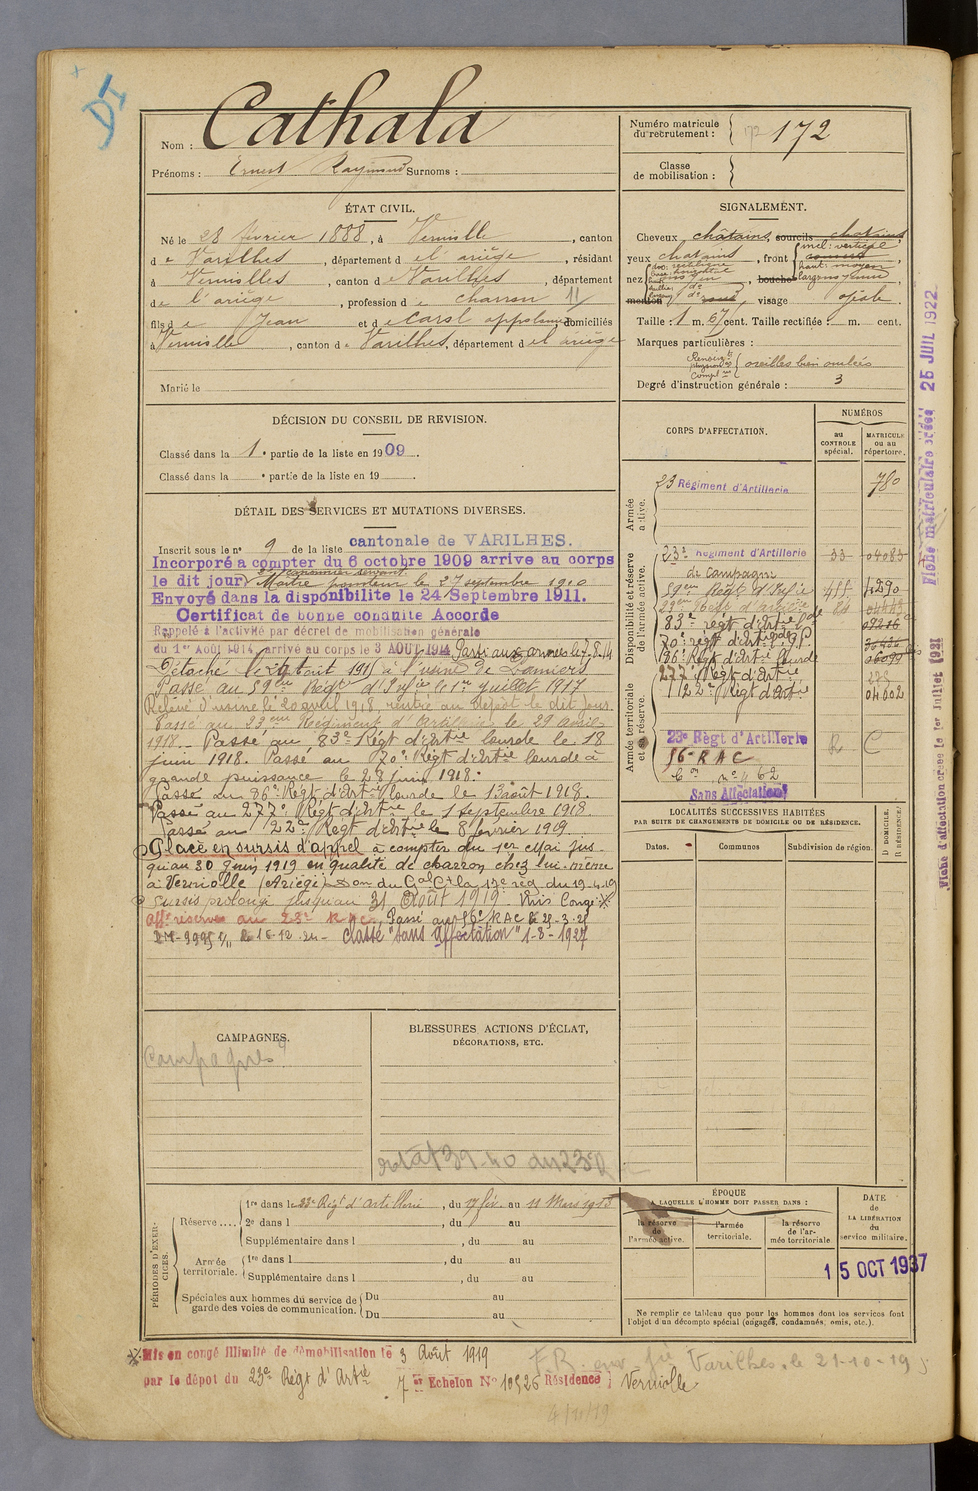 DI
Nom : Cathala
Prénoms : Ernest Raymond Surnoms :
Numéro matricule du recrutement : 172 172
Classe de mobilisation :
ÉTAT CIVIL.
Né le 28 février 1888, à Verniolle, canton
de Varilhes, département de l'ariège, résidant
à Verniolles, canton de Varilhes, département
de l'ariège, profession de charron 11
fils de Jean et de domiciliés
à Verniolle, canton de Varilhes, département de l'ariège
Marié le
SIGNALEMENT.
Cheveux châtains, sourcils chatains
yeux chatains, front incl: verticle
haut: moyen
nez larg: moyenne
bouche
menton visage ovale
Taille : 1 m. 67 cent. Taille rectifiée : m. cent.
Marques particulières :
oreilles bien ourlées
Degré d'instruction générale : 3
DÉCISION DU CONSEIL DE REVISION.
Classé dans la 1e partie de la liste en 1909.
Classé dans la e partie de la liste en 19 .
DÉTAIL DES SERVICES ET MUTATIONS DIVERSES.
Inscrit sous le n° 9 de la liste cantonale de VARILHES.
Incorporé à compter du 6 octobre 1909 arrive au corps
le dit jour 2e canonnier servant.
Maître pointeur le 27 septembre 1910
Envoyé dans la disponibilite le 24 Septembre 1911.
Certificat de bonne conduite Accorde
Rappelé à l'activité par décret de mobilisation générale
du 1er Août 1914, arrivé au corps le 3 AOUT 1914 Parti aux armées le 7.8.14
Détaché le août 1915 à l'usine de Pamiers
Passé au 59eme Régt d'Infie le 1er juillet 1917
Relevé d'usine le 20 avril 1918, rentré au dépôt le dit jour.
Passé au 23eme Régiment d'Artillerie le 29 avril
1918. Passé au 83e Régt d'artie lourde le 18
juin 1918. Passé au 70e Régt d'artie lourde à
grande puissance le 28 juin 1918.
Passé au 86e Régt d'artie lourde le 13 août 1918.
Passé au 277e Régt d'Artie le 1 septembre 1918
Passé au 22e Régt d'Artie le 8 février 1919
Placé en sursis d'appel à compter du 1er Mai jus-
qu'au 30 Juin 1919 en qualité de charron chez lui-même
à Verniolle (Ariège) Don du Gal Ct la 17e rég. du 19-4-19
Sursis prolongé jusqu'au 31 Août 1919 - Mis Congé
Affé réserve au 23e RAC, Passé au 56e RAC le 25-3-25
DM-9995 1/11 le 16-12-24 - Classé "sans affectation" 1-8-1927
CORPS D'AFFECTATION.
NUMÉROS
au CONTROLE spécial.
MATRICULE ou au répertoire.
Armée active.
23 Régiment d'Artillerie 780
Disponibilité et réserve de l'armée active.
23e Régiment d'Artillerie 33 04085
de Campagne
59eme Régt d'Infie 455 4290
23eme Régt d'artie 84
83e régt d'artie lde
70e régt d'artie l.g.P.
86e Régt d'artie lourde
277e Régt d'artie
22e Régt d'artie 04602
Armée territoriale et sa réserve.
23e Règt d'Artillerie R C
56e R A C
n° 462
Sans Affectation
LOCALITÉS SUCCESSIVES HABITÉES
PAR SUITE DE CHANGEMENTS DE DOMICILE OU DE RÉSIDENCE.
Dates. Communes Subdivision de région. D DOMICILE. R RÉSIDENCE.
CAMPAGNES.
Campagnes
BLESSURES ACTIONS D'ÉCLAT,
DÉCORATIONS, ETC.
39-40 du 23e
PÉRIODES D'EXERCICES.
Réserve....
1re dans le 23e Régt d'artillerie, du 17 fév. au 11 Mars 1913
2e dans l , du au
Supplémentaire dans l , du au
Armée territoriale.
1re dans l , du au
Supplémentaire dans l , du au
Spéciales aux hommes du service de garde des voies de communication.
Du au
Du au
ÉPOQUE
A LAQUELLE L'HOMME DOIT PASSER DANS :
la réserve de l'armée active.
l'armée territoriale.
la réserve de l'armée territoriale
DATE de LA LIBÉRATION du service militaire.
15 OCT 1937
Ne remplir ce tableau que pour les hommes dont les services font
l'objet d'un décompte spécial (engagés, condamnés, omis, etc.).
Mis en congé illimité de démobilisation le 3 Août 1919
par le dépot du 23e Régt d'Artie 7e Echelon N° 10526 Résidence : Verniolle
Varilhes, le 21-10-19
Fiche matriculaire créée 25 JUIL 1922
Fiche d'affectation créée le 1er Juillet 1921